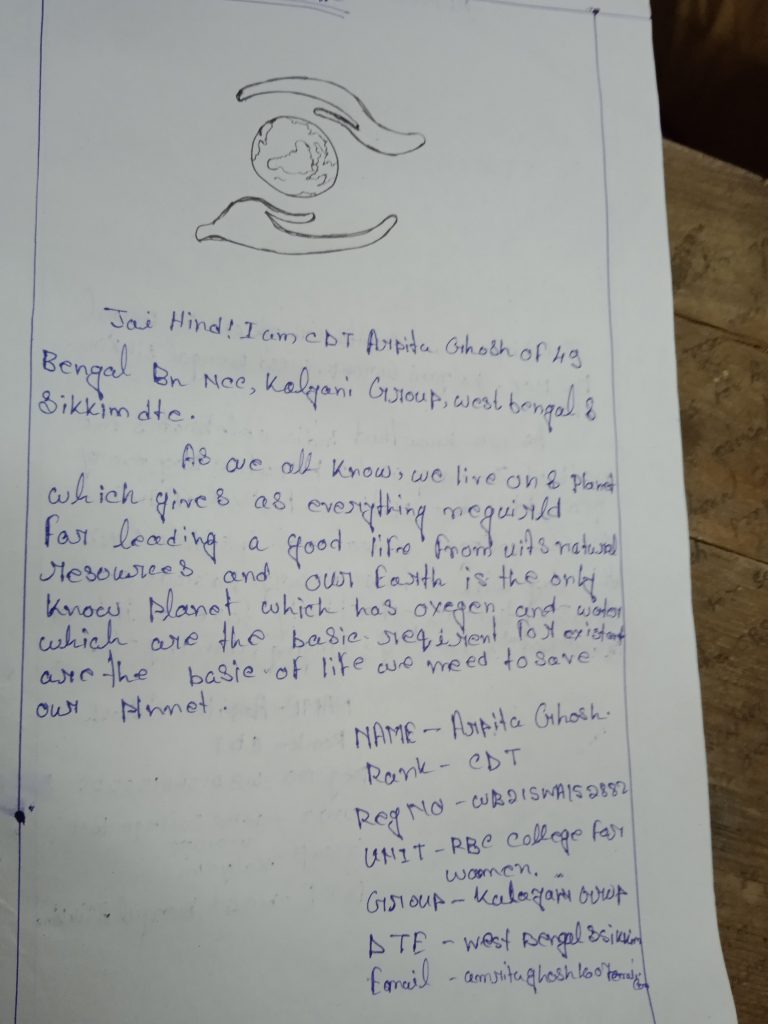 Jai Hind! I am CDT Arpita Ghosh of 49
Bengal Bn Ncc, Kalyani Group, west bengal &
Sikkim dte.
As we all know, we live on a planet
which gives as everything
for leading a good life from its natural
resources and our Earth is the only
know planet which has oxegen and water
which are the basic requirent for existant
are the basic of life we need to save
our planet.
NAME - Arpita Ghosh.
Rank - CDT
Reg No - WB21SWA152882
UNIT - RBC college for
women.
Group - Kalayani Group
DTE - west Bengal & sikkim
Email - amritaghosh